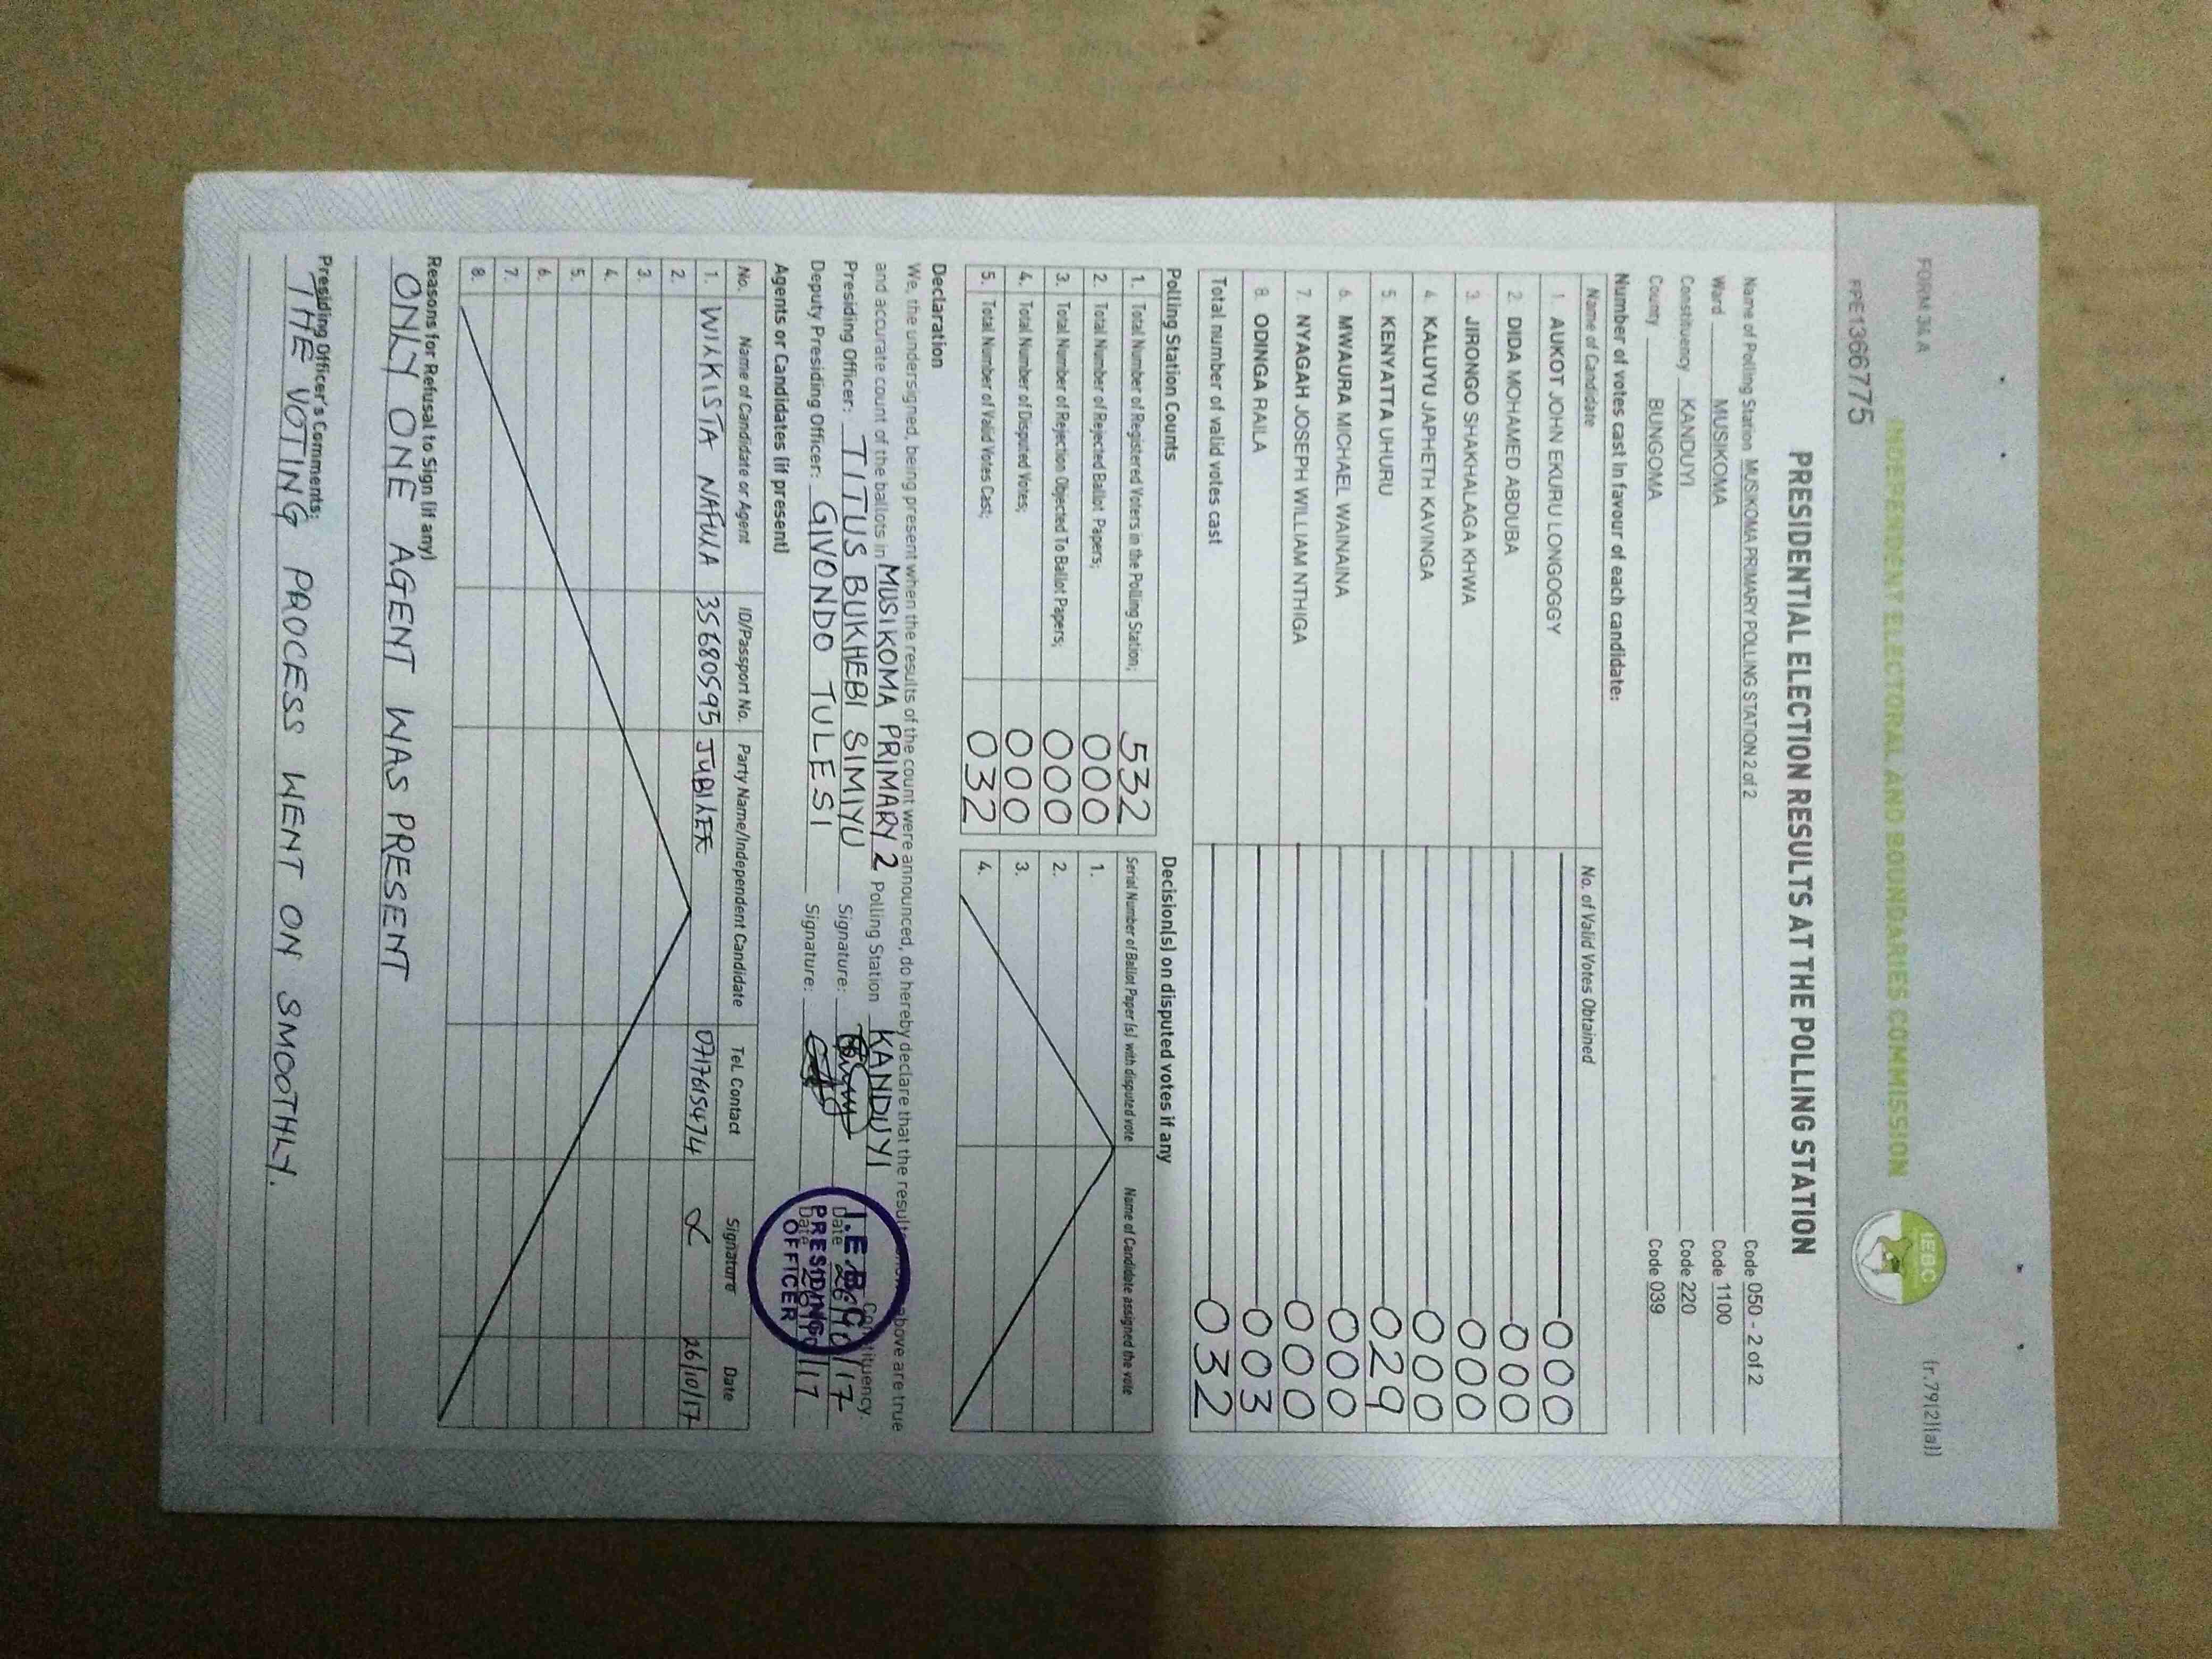 FORM 34 A
(r.79(2)(a))
INDEPENDENT ELECTORAL AND BOUNDARIES COMMISSION
IEBC
PPE1366775
PRESIDENTIAL ELECTION RESULTS AT THE POLLING STATION
Name of Polling Station MUSIKOMA PRIMARY POLLING STATION 2 of 2 Code 050 - 2 of 2
Ward MUSIKOMA Code 1100
Constituency KANDUYI Code 220
County BUNGOMA Code 039
Number of votes cast in favour of each candidate:
Name of Candidate No. of Valid Votes Obtained
1. AUKOT JOHN EKURU LONGOGGY 000
2. DIDA MOHAMED ABDUBA 000
3. JIRONGO SHAKHALAGA KHWA 000
4. KALUYU JAPHETH KAVINGA 000
5. KENYATTA UHURU 029
6. MWAURA MICHAEL WAINAINA 000
7. NYAGAH JOSEPH WILLIAM NTHIGA 000
8. ODINGA RAILA 003
Total number of valid votes cast 032
Polling Station Counts
1. Total Number of Registered Voters in the Polling Station; 532
2. Total Number of Rejected Ballot Papers; 000
3. Total Number of Rejection Objected To Ballot Papers; 000
4. Total Number of Disputed Votes; 000
5. Total Number of Valid Votes Cast; 032
Decision(s) on disputed votes if any
Serial Number of Ballot Paper (s) with disputed vote Name of Candidate assigned the vote
1.
2.
3.
4.
Declaration
We, the undersigned, being present when the results of the count were announced, do hereby declare that the results above are true
and accurate count of the ballots in MUSIKOMA PRIMARY 2 Polling Station KANDUYI Constituency.
Presiding Officer: TITUS BUKHEBI SIMIYU Signature: Date 26/10/17
Deputy Presiding Officer: GIVONDO TULESI Signature: Date
I.E.B.C
PRESIDING
OFFICER
Agents or Candidates (if present)
No. Name of Candidate or Agent ID/Passport No. Party Name/Independent Candidate Tel. Contact Signature Date
1. WILKISTA NAFULA 35680595 JUBILEE 0717615474 26/10/17
2.
3.
4.
5.
6.
7.
8.
Reasons for Refusal to Sign (if any)
ONLY ONE AGENT WAS PRESENT
Presiding Officer's Comments:
THE VOTING PROCESS WENT ON SMOOTHLY.